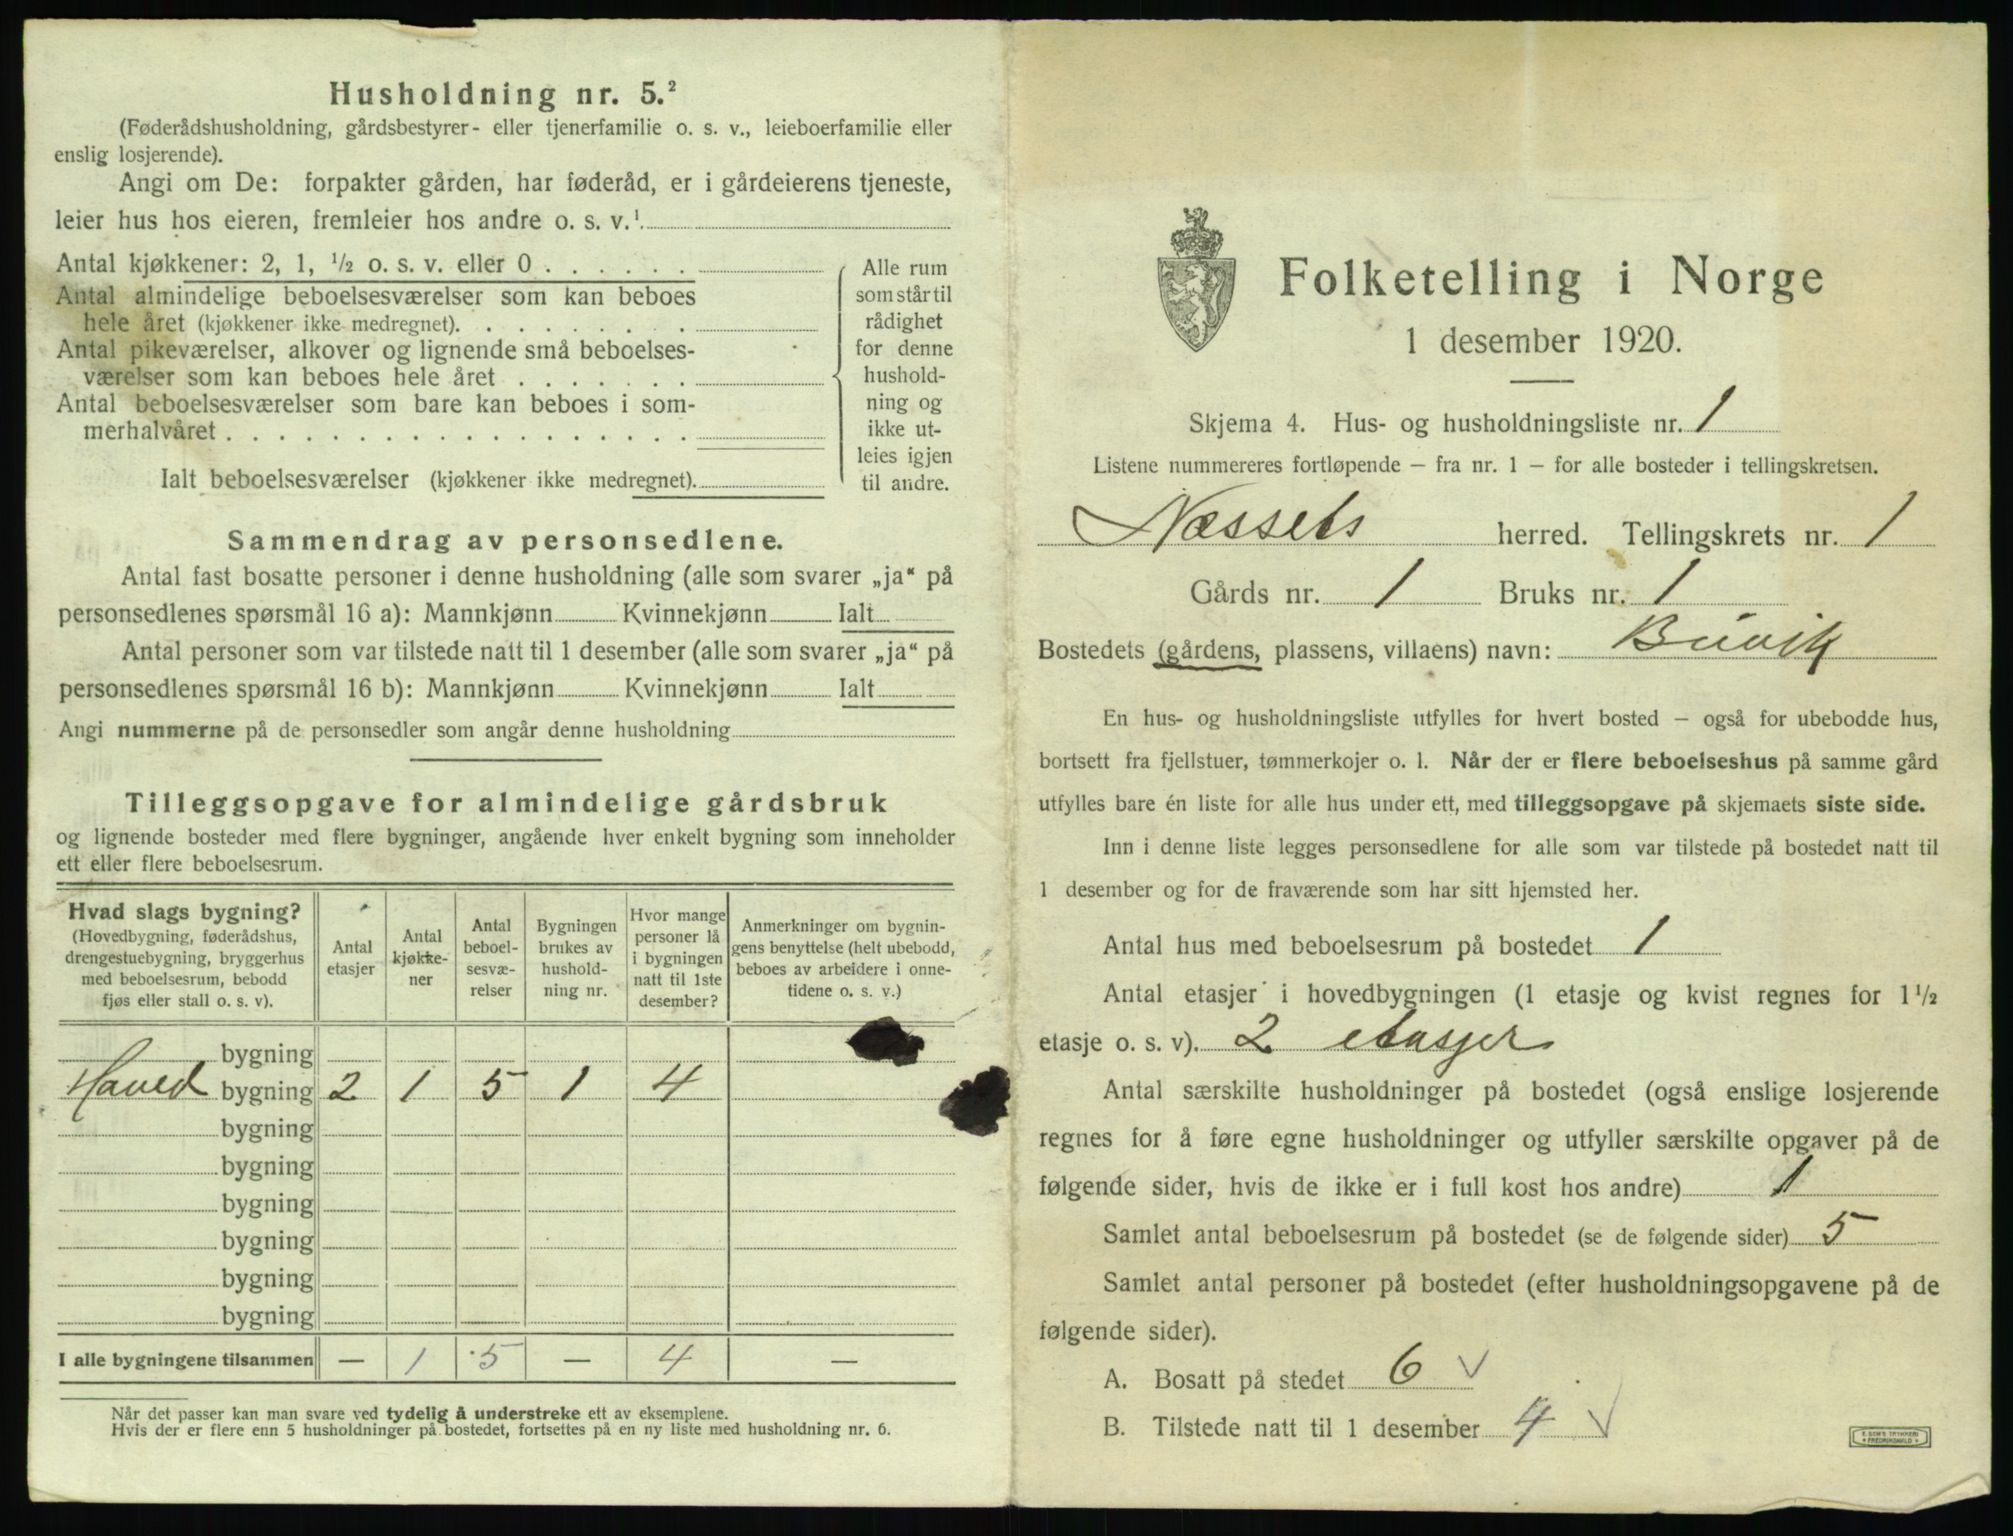 Husholdning nr. 5.²
(Føderådshusholdning, gårdsbestyrer- eller tjenerfamilie o. s. v., leieboerfamilie eller
enslig losjerende).
Angi om De: forpakter gården, har føderåd, er i gårdeierens tjeneste,
leier hus hos eieren, fremleier hos andre o. s. v.¹
Antal kjøkkener: 2, 1, ½ o. s. v. eller 0
Antal almindelige beboelsesværelser som kan beboes
hele året (kjøkkener ikke medregnet).
Antal pikeværelser, alkover og lignende små beboelses-
værelser som kan beboes hele året
Antal beboelsesværelser som bare kan beboes i som-
merhalvåret
Ialt beboelsesværelser (kjøkkener ikke medregnet).
Alle rum
som står til
rådighet
for denne
hushold-
ning og
ikke ut-
leies igjen
til andre.
Sammendrag av personsedlene.
Antal fast bosatte personer i denne husholdning (alle som svarer „ja“ på
personsedlenes spørsmål 16 a): Mannkjønn Kvinnekjønn Ialt
Antal personer som var tilstede natt til 1 desember (alle som svarer „ja“ på
personsedlenes spørsmål 16 b): Mannkjønn Kvinnekjønn Ialt
Angi nummerne på de personsedler som angår denne husholdning
Tilleggsopgave for almindelige gårdsbruk
og lignende bosteder med flere bygninger, angående hver enkelt bygning som inneholder
ett eller flere beboelsesrum.
Hvad slags bygning?
(Hovedbygning, føderådshus,
drengestuebygning, bryggerhus
med beboelsesrum, bebodd
fjøs eller stall o. s. v).
Antal
etasjer
Antal
kjøkke-
ner
Antal
beboel-
sesvæ-
relser
Bygningen
brukes av
hushold-
ning nr.
Hvor mange
personer lå
i bygningen
natt til 1ste
desember?
Anmerkninger om bygnin-
gens benyttelse (helt ubebodd,
beboes av arbeidere i onne-
tidene o. s. v.)
bygning
Hoved bygning 2 1 5 1 4
bygning
bygning
bygning
bygning
bygning
bygning
I alle bygningene tilsammen — 1 5 — 4 —
Når det passer kan man svare ved tydelig å understreke ett av eksemplene.
Hvis der er flere enn 5 husholdninger på bostedet, fortsettes på en ny liste med husholdning nr. 6.
Folketelling i Norge
1 desember 1920.
Skjema 4. Hus- og husholdningsliste nr. 1
Listene nummereres fortløpende – fra nr. 1 – for alle bosteder i tellingskretsen.
Næssets herred. Tellingskrets nr. 1
Gårds nr. 1 Bruks nr. 1
Bostedets (gårdens, plassens, villaens) navn: Buvik
En hus- og husholdningsliste utfylles for hvert bosted – også for ubebodde hus,
bortsett fra fjellstuer, tømmerkojer o. l. Når der er flere beboelseshus på samme gård
utfylles bare én liste for alle hus under ett, med tilleggsopgave på skjemaets siste side.
Inn i denne liste legges personsedlene for alle som var tilstede på bostedet natt til
1 desember og for de fraværende som har sitt hjemsted her.
Antal hus med beboelsesrum på bostedet 1
Antal etasjer i hovedbygningen (1 etasje og kvist regnes for 1½
etasje o. s. v). 2 etasjer
Antal særskilte husholdninger på bostedet (også enslige losjerende
regnes for å føre egne husholdninger og utfyller særskilte opgaver på de
følgende sider, hvis de ikke er i full kost hos andre) 1
Samlet antal beboelsesrum på bostedet (se de følgende sider) 5
Samlet antal personer på bostedet (efter husholdningsopgavene på de
følgende sider).
A. Bosatt på stedet 6 ✓
B. Tilstede natt til 1 desember 4 ✓
E. SEM'S TRYKKERI
FREDRIKSHALD